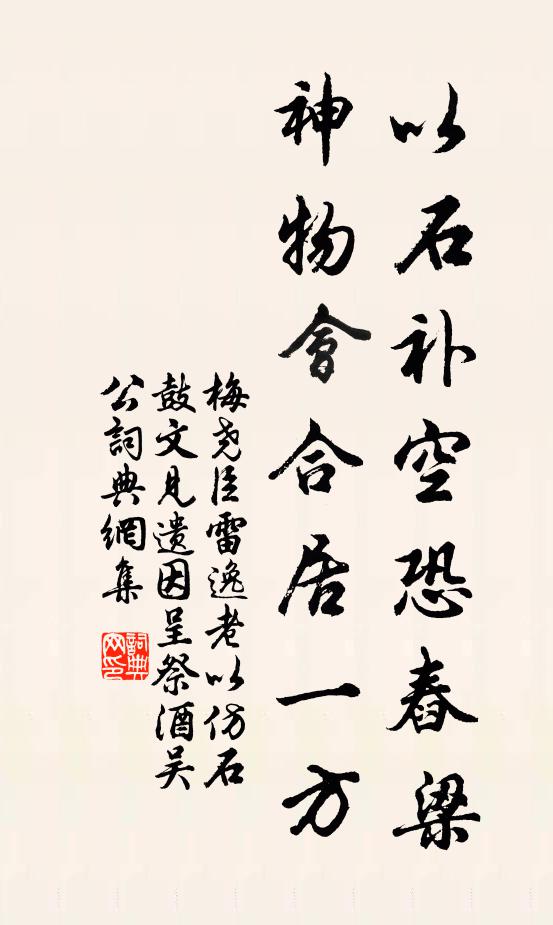 以石补空恐舂梁
神物會合居一方
梅尧臣雷逸老以仿石
鼓文见遗因呈祭酒吴
公詞典網集
詞典
网印